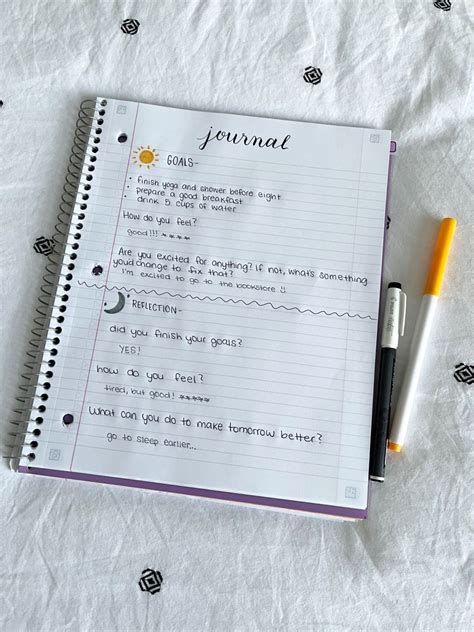 journal
GOALS-
• finish yoga and shower before eight
• prepare a good breakfast
• drink 5 cups of water
How do you feel?
good!!! ****
Are you excited for anything? If not, what's something
you'd change to fix that?
I'm excited to go to the bookstore
REFLECTION-
did you finish your goals?
YES!
how do you feel?
tired, but good! *****
What can you do to make tomorrow better?
go to sleep earlier...